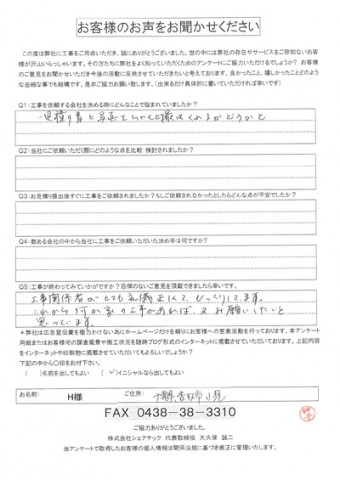 お客様のお声をお聞かせください
この度は弊社に工事をご用命いただき、誠にありがとうございました。世の中には弊社の存在やサービスをご存知ないお客
様が沢山いらっしゃいます。その方たちに弊社を知っていただくためのアンケートにご協力いただけるでしょうか？ お客様
のご意見をお聞かせいただき今後の活動に反映させていただきたいと考えております。良かったこと、嬉しかったことどのよう
な些細な事でも結構です、是非ご協力お願い致します。(出来るだけ具体的に書いていただければ幸いです)
Q1:工事を依頼する会社を決める時にどんなことで悩まれていましたか？
見積り書と写真を
Q2:当社にご依頼いただく際にどのような点を比較・検討されましたか？
Q3:お見積り提出後すぐに工事をご依頼されましたか？もしご依頼されなかったとしたらどんな点が不安でしたか？
Q4:数ある会社の中から当社に工事をご依頼いただいた決め手は何ですか？
Q5:工事が終わってみていかがですか？忌憚のないご意見を頂戴できましたら幸いです。
工事関係者がとても礼儀正しくて、びっくりしてます。
これから何か家の工事があれば、又お願いしたいと
思っています。
＊弊社は広告宣伝費を極力かけない為にホームページだけを頼りにお客様への営業活動を行っております。本アンケート
用紙またはお客様宅の調査風景や施工状況を随時ブログ形式のインターネットに掲載させていただいております。上記内容
をインターネットや印刷物に掲載させていただいてもよろしいでしょうか？
下記の中から〇印をお付下さい。
( )名前を出してもよい (✓)イニシャルなら出してもよい
お名前: H様 ご住所: 千葉県
FAX 0438-38-3310
ご協力ありがとうございました。
株式会社シェアテック 代表取締役 大久保 誠二
当アンケートで取得したお客様の個人情報は関係法規に基づき厳正に管理いたします。